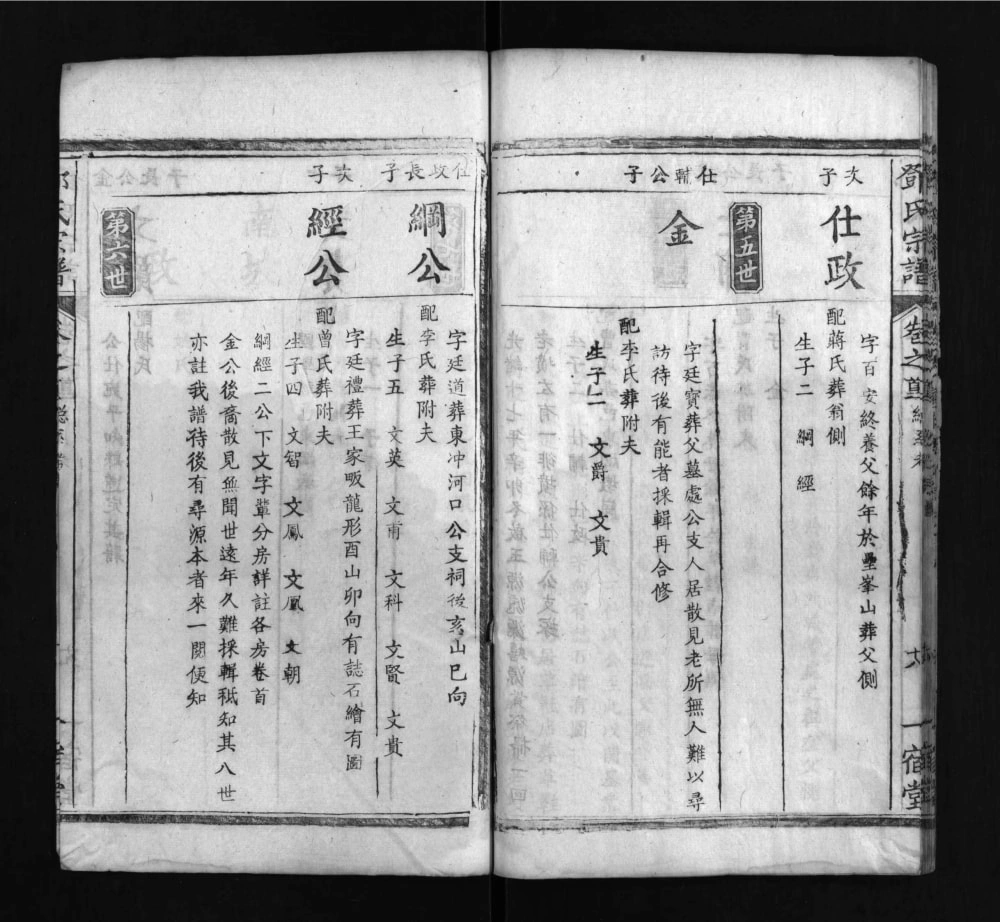 鄧氏宗譜
卷之首
一宿堂
次子
仕政
字百安終養父餘年於壘峯山葬父側
配蔣氏葬翁側
生子二 綱 經
第五世
仕輔公子
金
字廷寶葬父墓處公支人居散見老所無人難以尋
訪待後有能者採輯再合修
配李氏葬附夫
生子二 文爵 文貴
仕政長子
綱公
字廷道葬東冲河口公支祠後亥山巳向
配李氏葬附夫
生子五 文英 文甫 文科 文賢 文貴
次子
經公
字廷禮葬王家畈龍形酉山卯向有誌石繪有圖
配曾氏葬附夫
生子四 文智 文鳳 文鳳 文朝
綱經二公下文字輩分房詳註各房卷首
金公後裔散見無聞世遠年久難採輯秪知其八世
亦註我譜待後有尋源本者來一閱便知
第六世